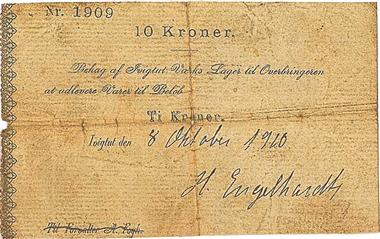 Nr. 1909
10 Kroner.
Behag af Ivigtut Værks Lager til Overbringeren
at udlevere Varer til Beløb
Ti Kroner.
Ivigtut den 8 Oktober 1910
H. Engelhardt
Til Forvalter A. Fogh.